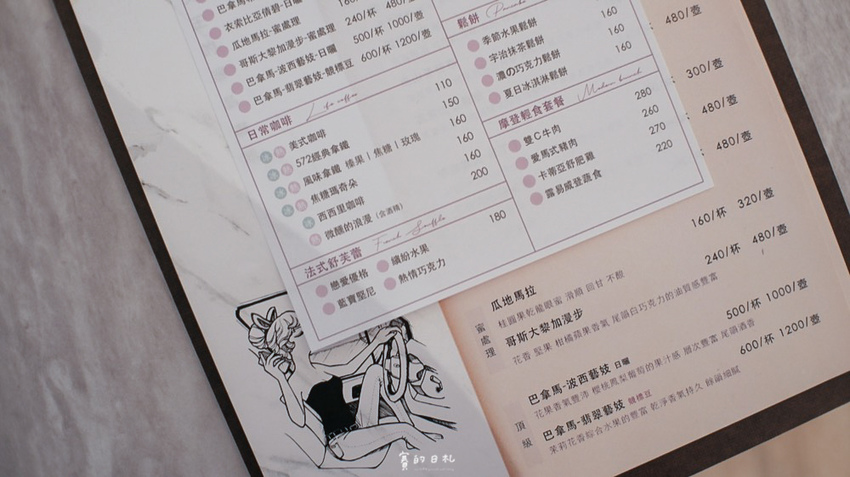 衣索比亞倩碧-日曬
瓜地馬拉-蜜處理
240/杯 480/壺
哥斯大黎加漫步-蜜處理
500/杯 1000/壺
巴拿馬-波西藝妓-日曬
600/杯 1200/壺
巴拿馬-翡翠藝妓-競標豆
日常咖啡 Life coffee
美式咖啡 110
572經典拿鐵 150
風味拿鐵 榛果|焦糖|玫瑰 160
焦糖瑪奇朵 160
西西里咖啡 160
微醺的浪漫(含酒精) 200
法式舒芙蕾 French Souffle 180
戀愛優格
繽紛水果
藍寶堅尼
熱情巧克力
鬆餅 Pancake
160
季節水果鬆餅 160
宇治抹茶鬆餅 160
濃の巧克力鬆餅 160
夏日冰淇淋鬆餅
摩登輕食套餐 Modern brunch
雙C牛肉 280
愛馬式豬肉 260
卡蒂亞舒肥雞 270
露易威登蔬食 220
480/壺
300/壺
480/壺
480/壺
160/杯 320/壺
蜜處理
瓜地馬拉 240/杯 480/壺
桂圓果乾龍眼蜜 滑順 回甘 不酸
哥斯大黎加漫步
花香 堅果 柑橘蘋果香氣 尾韻白巧克力的油質感豐富
500/杯 1000/壺
頂級
巴拿馬-波西藝妓 日曬
花果香氣豐沛 櫻桃鳳梨葡萄的果汁感 層次豐富 尾韻酒香
600/杯 1200/壺
巴拿馬-翡翠藝妓 競標豆
茉莉花香綜合水果的豐富 乾淨香氣持久 絲綢細膩
賓的日札